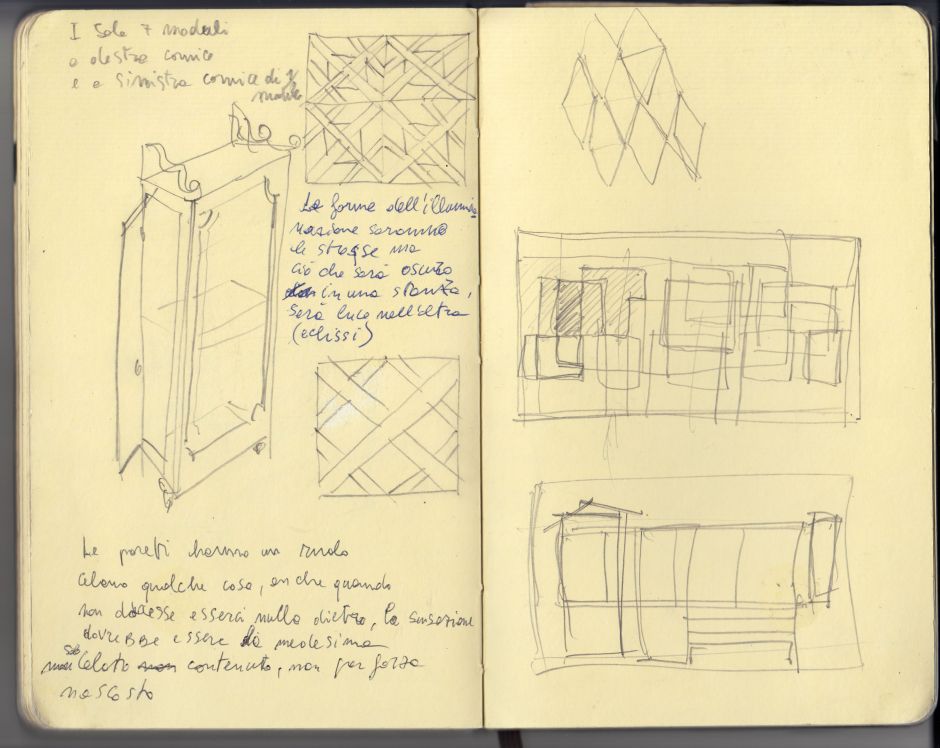 I Sole 7 moduli
a destra cornice
e a sinistra cornice di ½
modulo
Le forme dell'illumi
nazione saranno
le stesse ma
ciò che sarà oscuro
in una stanza,
sarà luce nell'altra
(eclissi)
Le pareti hanno un ruolo
celano qualche cosa, anche quando
non dovesse esserci nulla dietro, la sensazione
dovrebbe essere la medesima
Celato contenuto, non per forza
nascosto